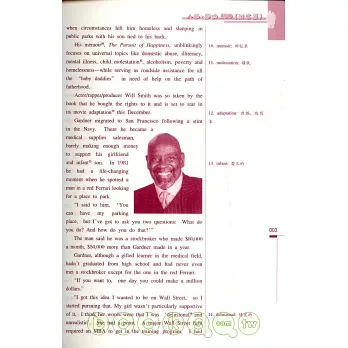 when circumstances left him homeless and sleeping in
public parks with his son tied to his back.
His memoir⁸, The Pursuit of Happiness, unblinkingly
focuses on universal topics like domestic abuse, illiteracy,
mental illness, child molestation⁹, alcoholism, poverty and
homelessness—while serving as roadside assistance for all
the "baby daddies" in need of help on the path of
fatherhood.
Actor/rapper/producer Will Smith was so taken by the
book that he bought the rights to it and is set to star in
its movie adaptation this December.
Gardner migrated to San Francisco following a stint
in the Navy. There he became a
medical supplies salesman,
barely making enough money
to support his girlfriend
and infant son. In 1981
he had a life-changing
moment when he spotted a
man in a red Ferrari looking
for a place to park.
"I said to him, 'You
can have my parking
place, but I've got to ask you two questions: What do
you do? And how do you do that?'"
The man said he was a stockbroker who made $80,000
a month, $50,000 more than Gardner made in a year.
Gardner, although a gifted learner in the medical field,
hadn't graduated from high school and had never even
met a stockbroker except for the one in the red Ferrari.
"If you want to, one day you could make a million
dollars."
"I got this idea I wanted to be on Wall Street, so I
started pursuing that. My girl wasn't particularly supportive
of it. I think her words were that I was 'delusional' and
unrealistic. She had a point. A major Wall Street firm
required an MBA to get in the training program. I had
memoir
molestation
12. adaptation
13. infant
003
14. delusional